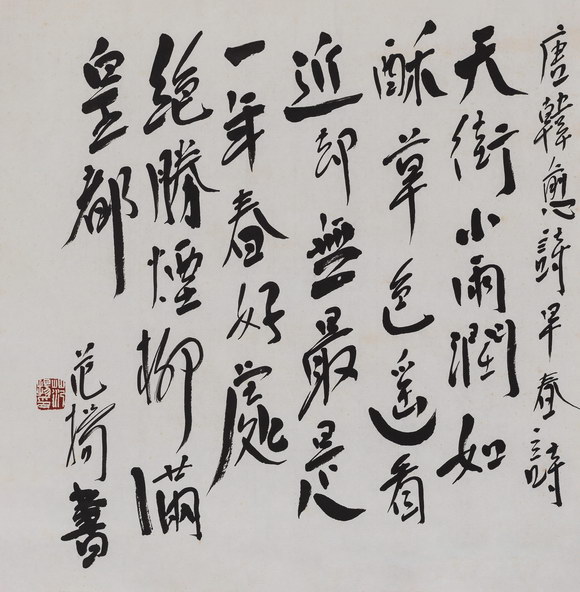 唐韓愈詩早春詩
天街小雨潤如
酥草色遙看
近却無最是
一年春好處
絕勝煙柳滿
皇都
范書